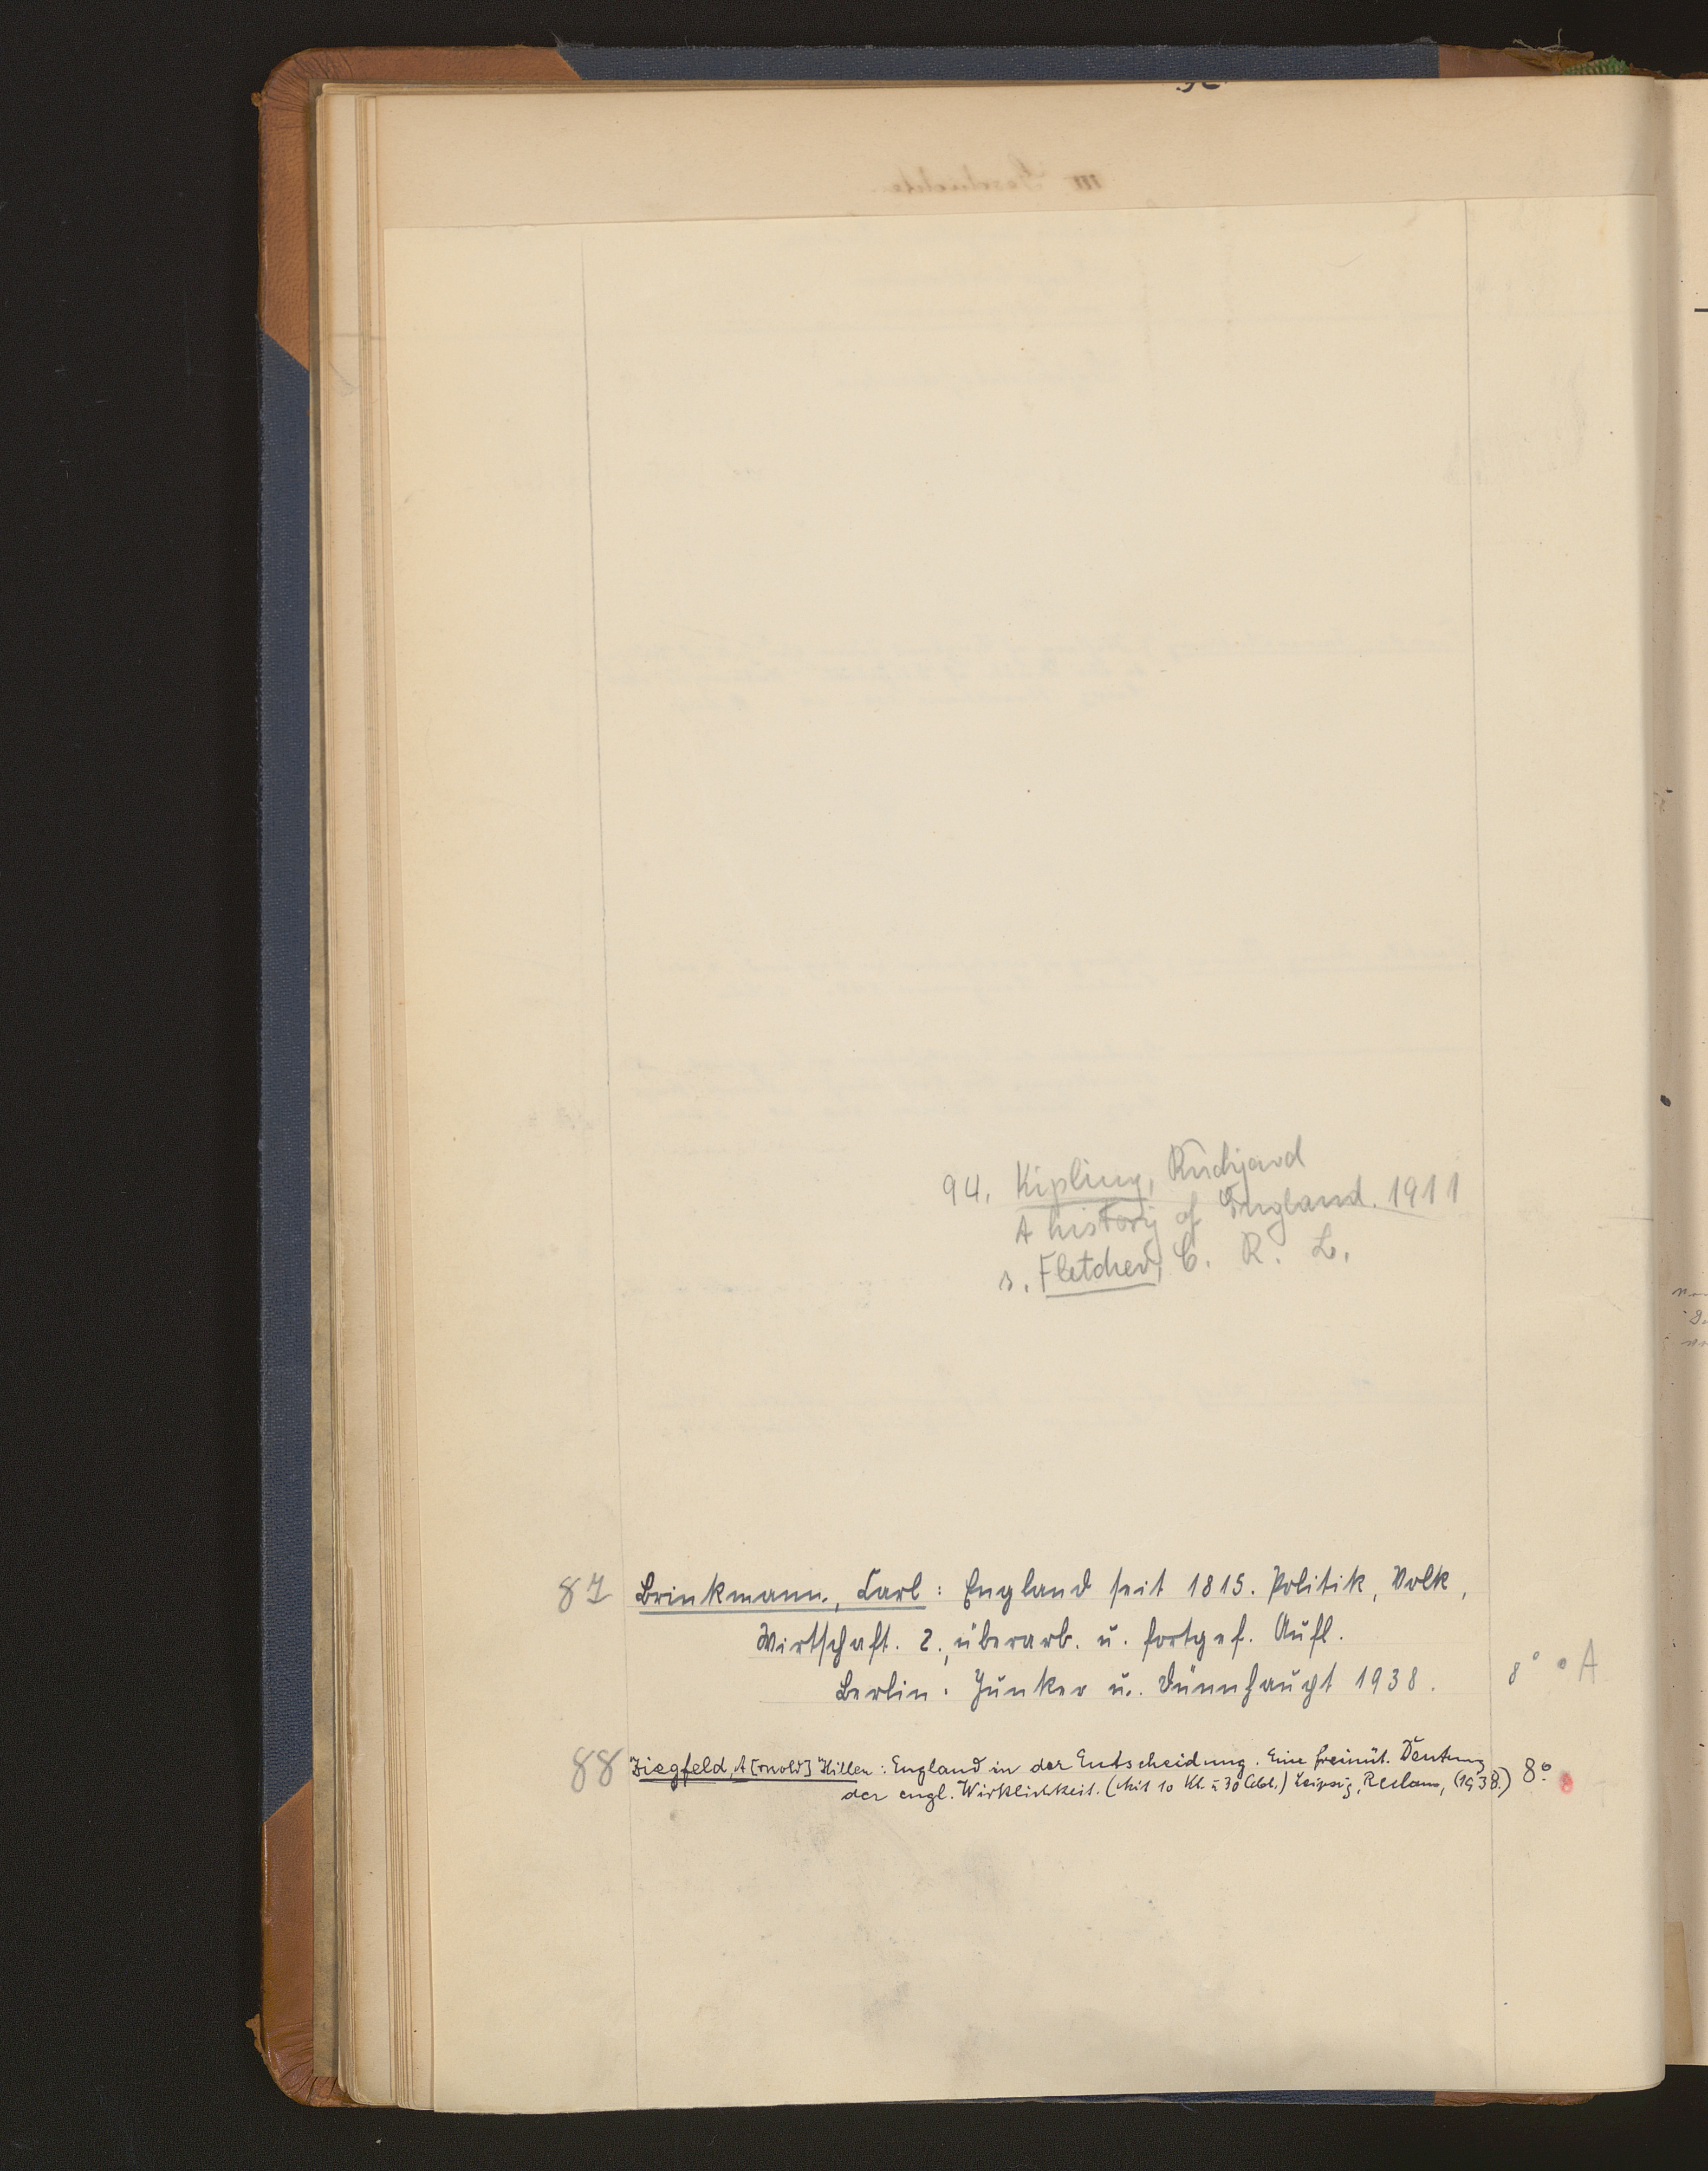 94. Kipling, Rudyard
A history of England. 1911
s. Fletcher, C. R. L.
87 Brinkmann, Carl: England seit 1815. Politik, Volk,
Wirtschaft. 2., überarb. u. fortgef. Aufl.
Berlin: Junker u. Dünnhaupt 1938. 8° A
88 Ziegfeld, A[rnold] Hillen: England in der Entscheidung. Eine freimüt. Deutung
der engl. Wirklichkeit. (Mit 10 Kt. u 30 Abb.) Leipzig, Reclam, (1938.) 8°